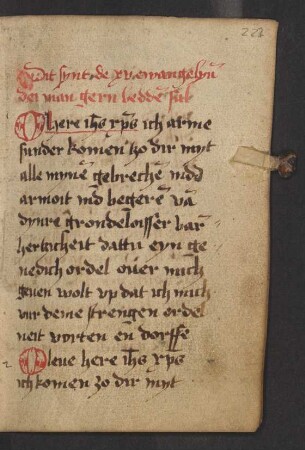 221
Dit synt de xv ewangelyū
dei man gern bedde sal
O here ihs xps ich arme
sunder komen tzo dir myt
alle mynē gebrechē indd
armoit vnd begere vā
dynre grondeloisser bar
hertzicheit dattu eyn ge
nedich ordel ouer mich
geuen wolt vp dat ich mich
vur deine strengen ordel
neit vorten en dorffe
O leue here ihs xps
ich komen zo dir myt